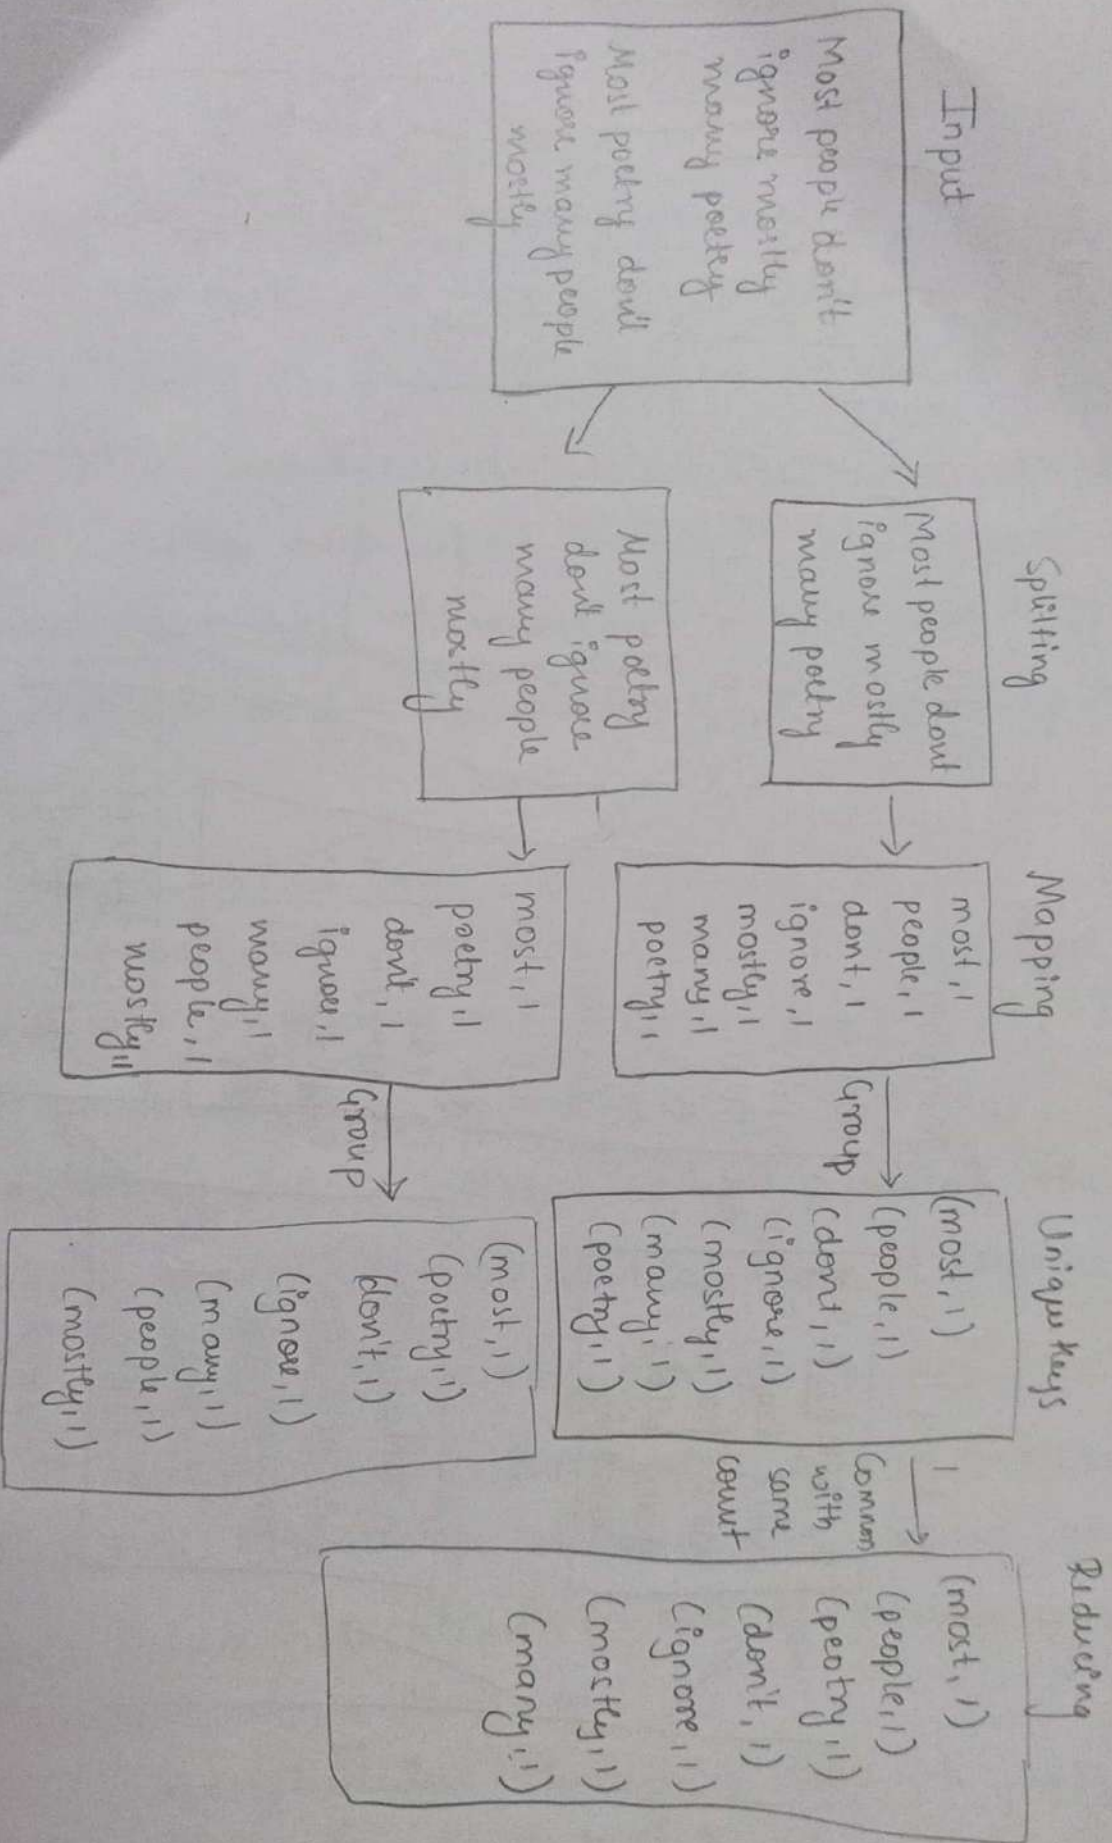 Input
Most people don't
ignore mostly
many poetry
Most poetry don't
ignore many people
mostly
Splitting
Most people dont
ignore mostly
many poetry
Most poetry
don't ignore
many people
mostly
Mapping
most, 1
people, 1
dont, 1
ignore, 1
mostly, 1
many, 1
poetry, 1
most, 1
poetry, 1
don't, 1
ignore, 1
many, 1
people, 1
mostly, 1
Group
Group
Unique keys
(most, 1)
(people, 1)
(dont, 1)
(ignore, 1)
(mostly, 1)
(many, 1)
(poetry, 1)
(most, 1)
(poetry, 1)
(don't, 1)
(ignore, 1)
(many, 1)
(people, 1)
(mostly, 1)
1
Common
with
same
count
Reducing
(most, 1)
(people, 1)
(peotry, 1)
(don't, 1)
(ignore, 1)
(mostly, 1)
(many, 1)